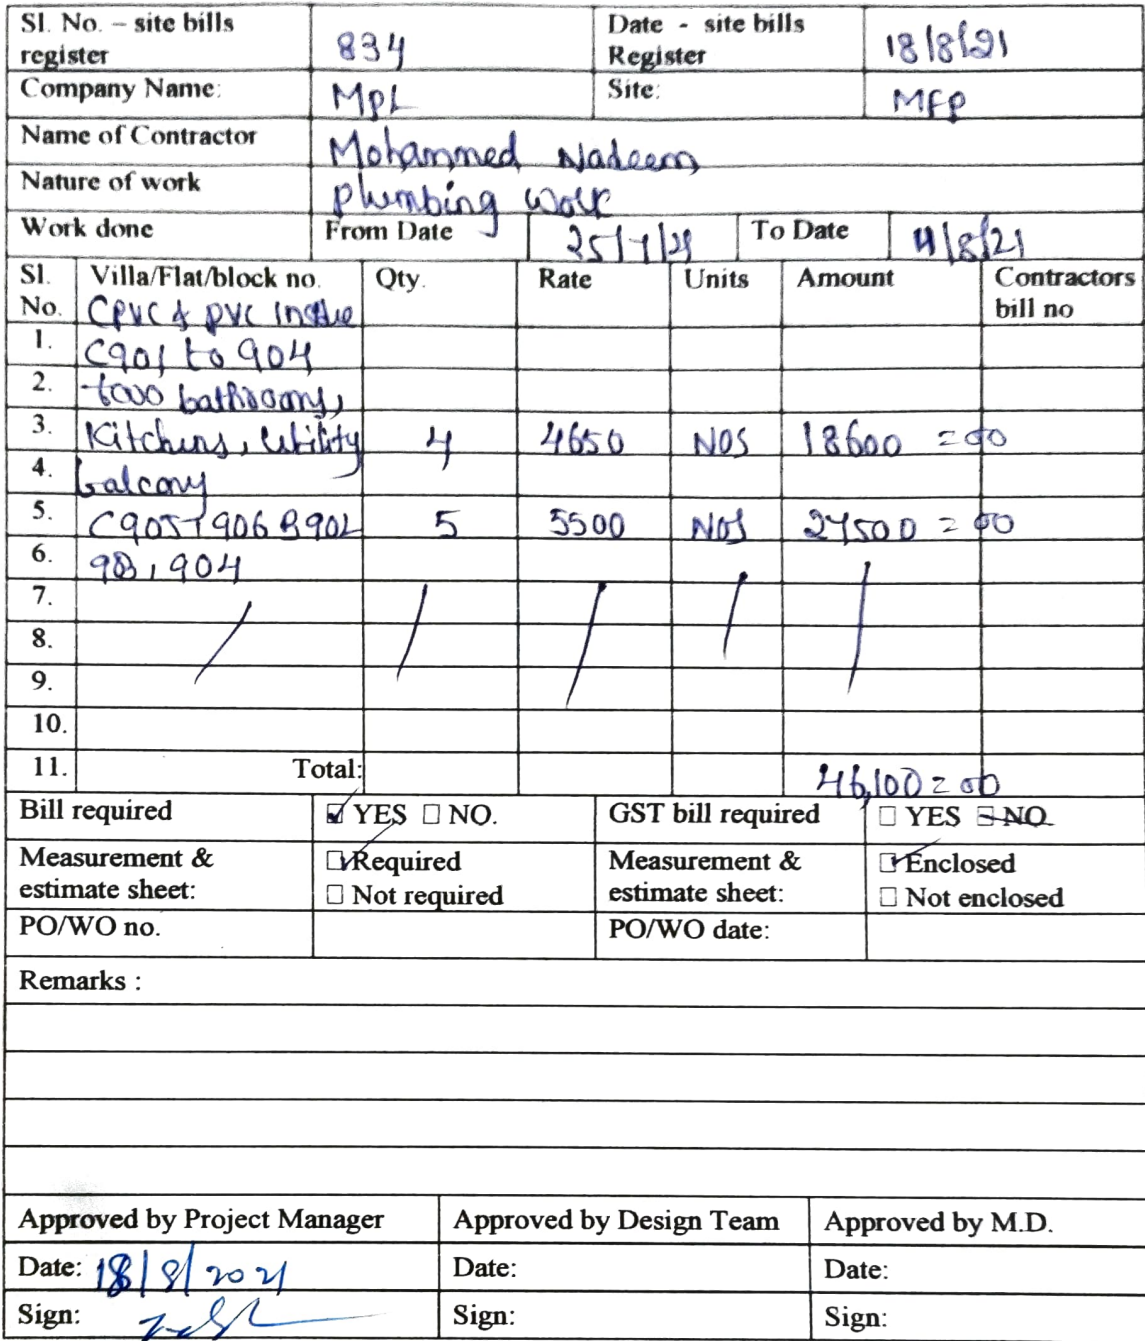 Sl. No. – site bills register 834 Date - site bills Register 18/8/21
Company Name: MPL Site: MFP
Name of Contractor Mohammed Nadeem
Nature of work plumbing work
Work done From Date 25/7/21 To Date 4/8/21
Sl. No. Villa/Flat/block no. Qty. Rate Units Amount Contractors bill no
CPVC & PVC Inside
1. C901 to 904
2. two bathrooms,
3. Kitchens, Utility 4 4650 NOS 18600 =00
4. balcony
5. C905 906 B902 5 5500 NOS 27500 =00
6. 903, 904
7.
8.
9.
10.
11. Total: 46,100=00
Bill required YES NO. GST bill required YES NO
Measurement & estimate sheet: Required Measurement & estimate sheet: Enclosed
Not required Not enclosed
PO/WO no. PO/WO date:
Remarks :
Approved by Project Manager Approved by Design Team Approved by M.D.
Date: 18/8/2021 Date: Date:
Sign: Sign: Sign: